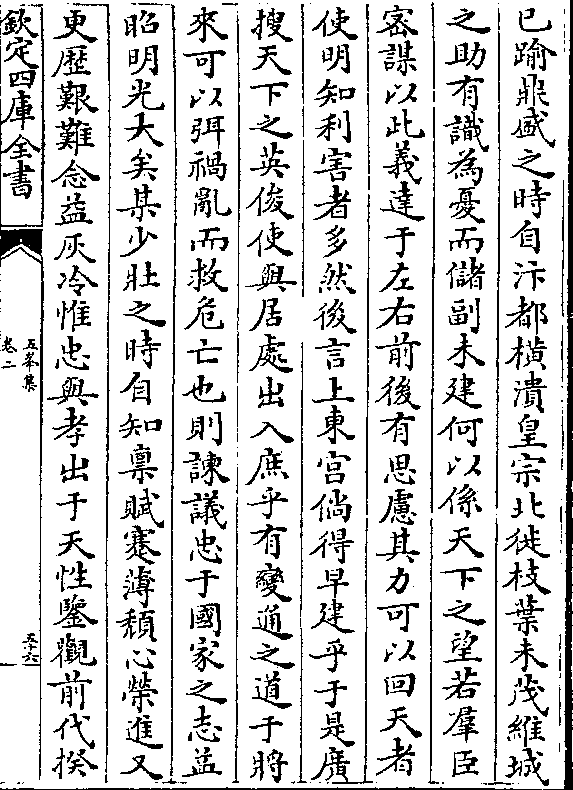 已踰鼎盛之時自汴都橫潰皇宗北徙枝葉未茂維城
之助有識為憂而儲副未建何以係天下之望若羣臣
密謀以此義達于左右前後有思慮其力可以回天者
使明知利害者多然後言上東宮倘得早建乎于是廣
搜天下之英俊使與居處出入庶乎有變通之道于將
來可以弭禍亂而救危亡也則諫議忠于國家之志益
昭明光大矣某少壯之時自知禀賦蹇薄頹心榮進又
更歷艱難念益灰冷惟忠與孝出于天性鑒觀前代揆
欽定四庫全書
五峯集
卷二
五十六